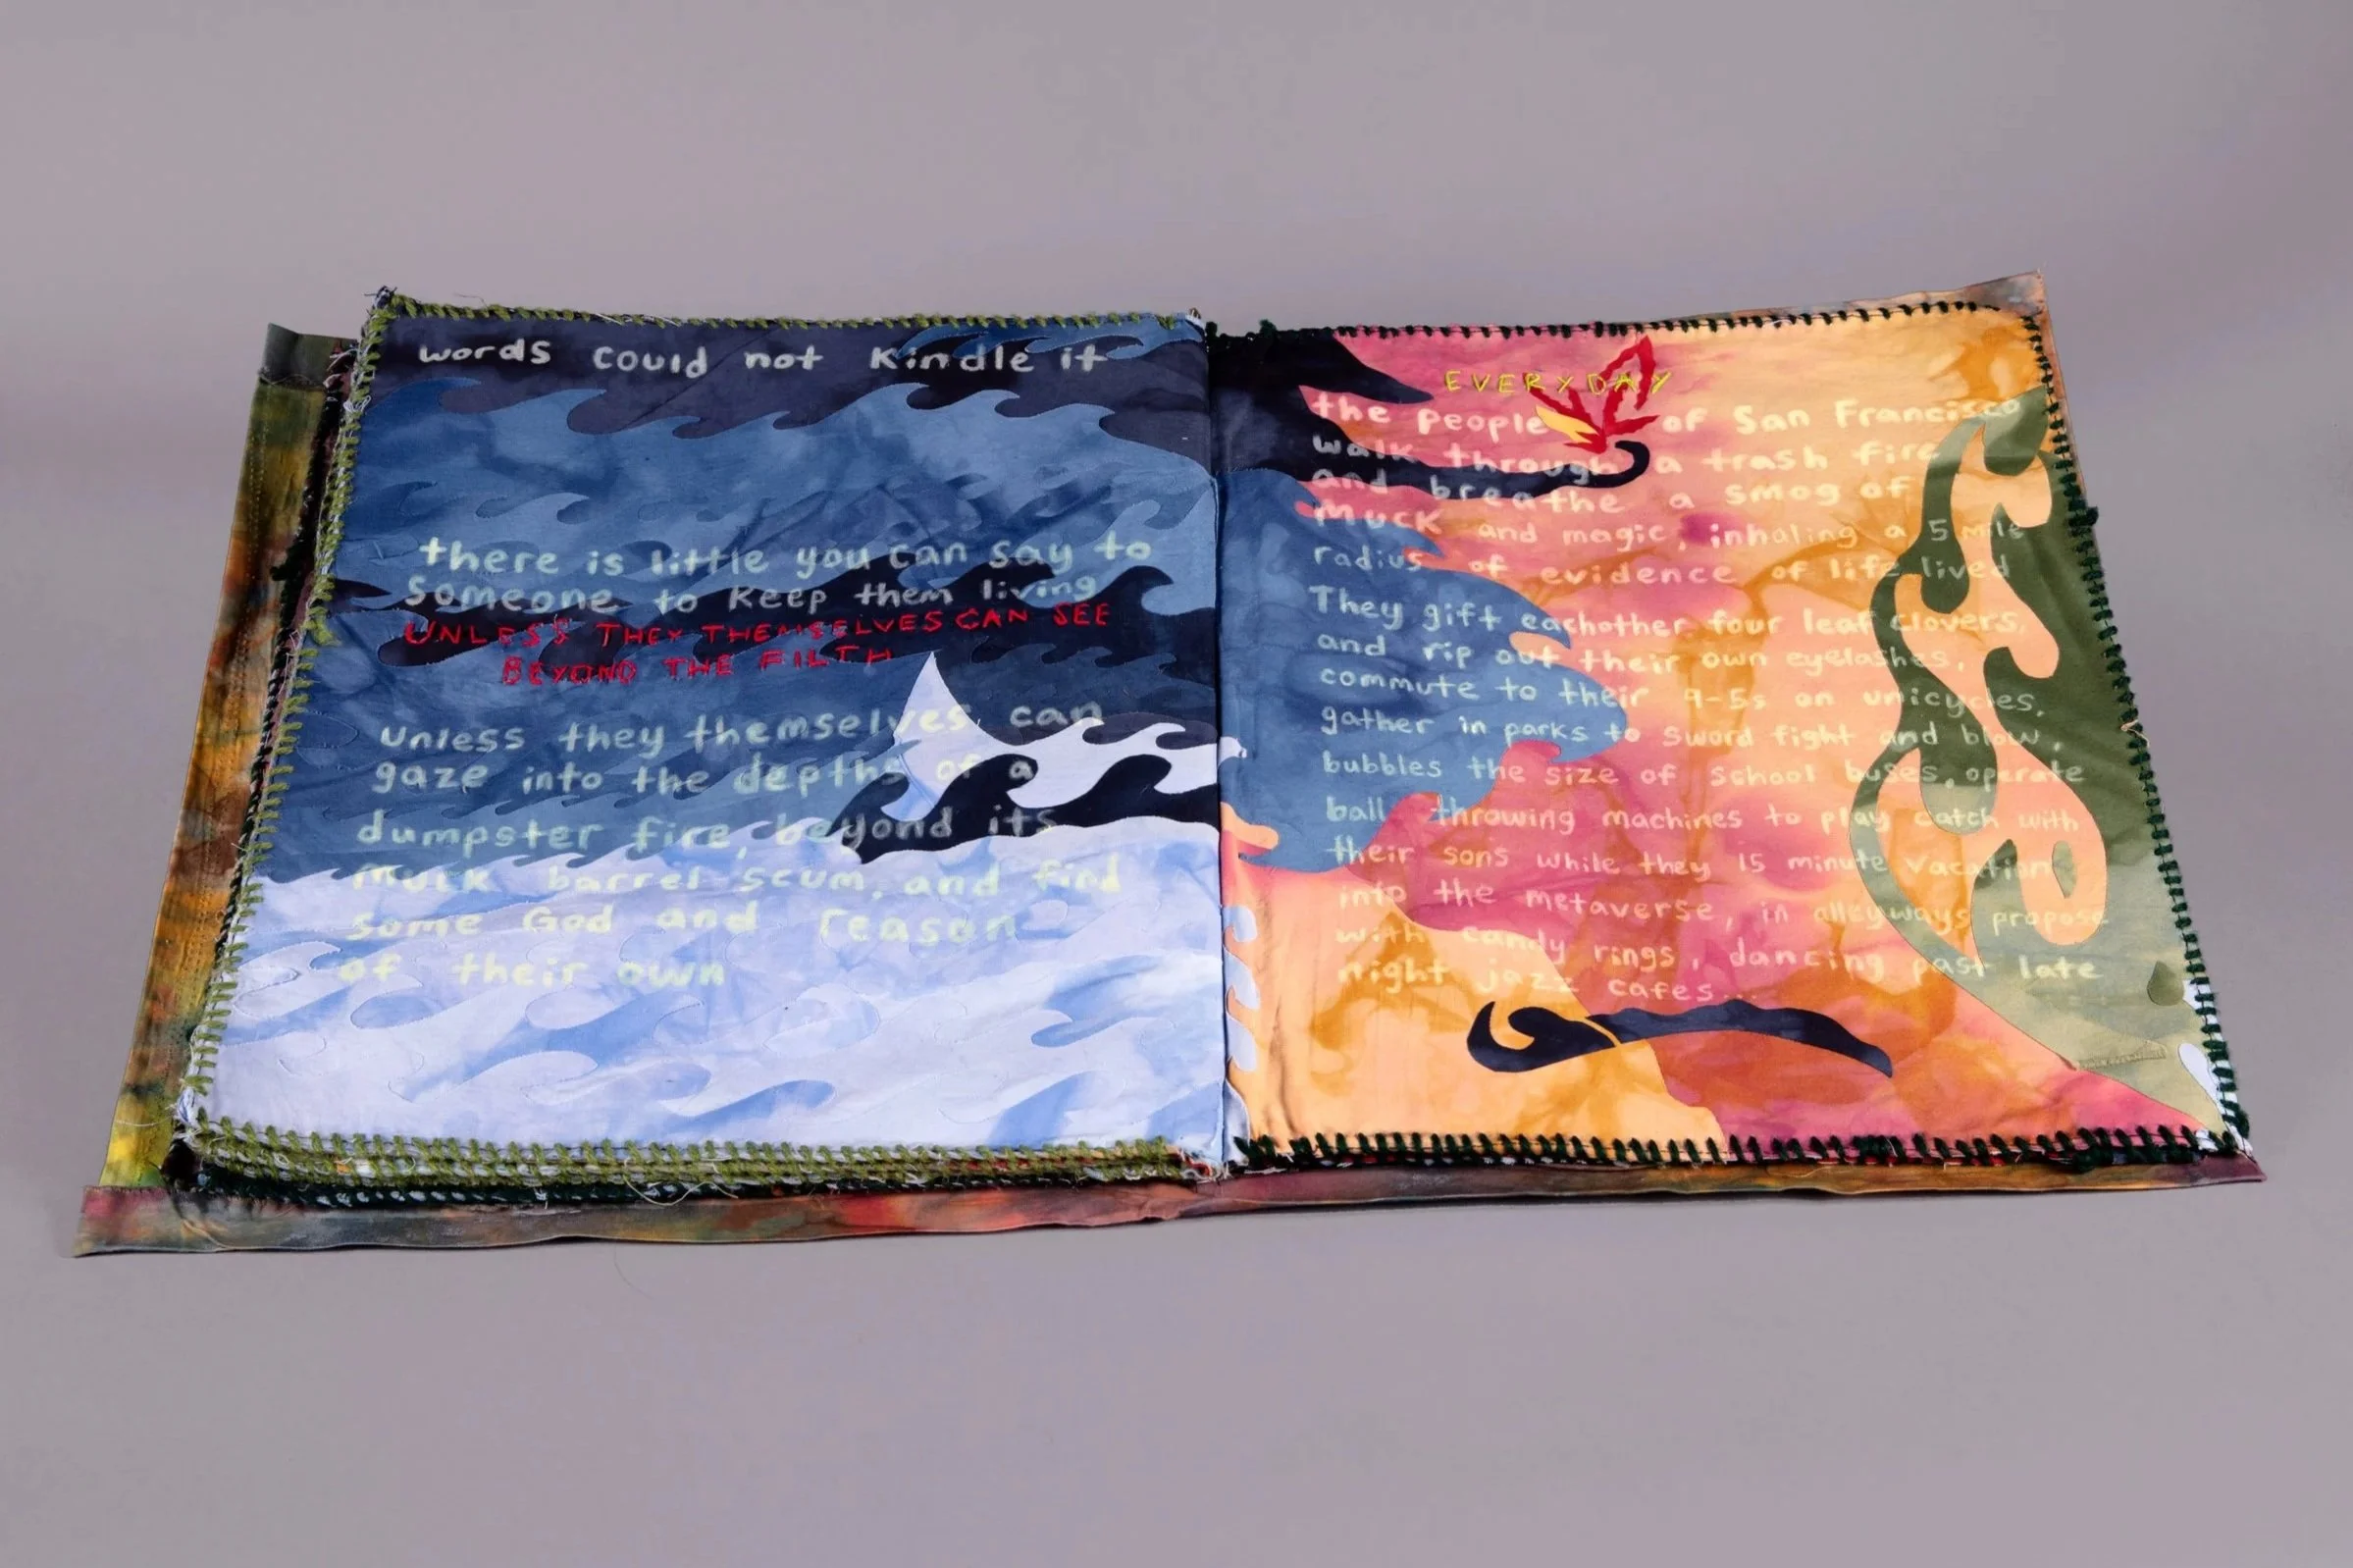 words could not Kindle it
there is little you can say to
someone to keep them living
UNLESS THEY THEMSELVES CAN SEE
BEYOND THE FILTH
unless they themselves can
gaze into the depths of a
dumpster fire, beyond its
muck barrel scum, and find
some God and reason
of their own
EVERYDAY
the people of San Francisco
walk through a trash fire
and breathe a smog of
muck and magic, inhaling a 5 mile
radius of evidence of life lived
They gift eachother four leaf clovers,
and rip out their own eyelashes,
commute to their 9-5s on unicycles,
gather in parks to sword fight and blow
bubbles the size of school buses, operate
ball throwing machines to play catch with
their sons while they 15 minute vacation
into the metaverse, in alleyways propose
with candy rings, dancing past late
night jazz cafes